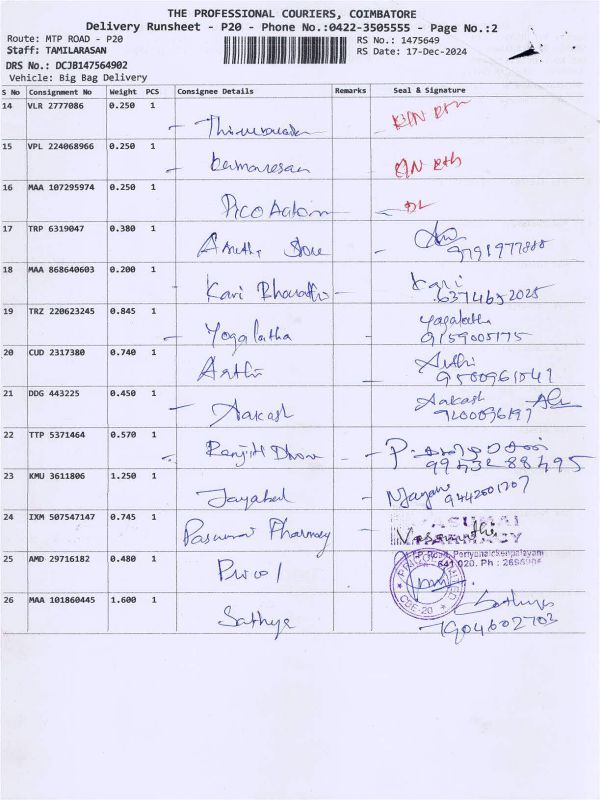 THE PROFESSIONAL COURIERS, COIMBATORE
Delivery Runsheet - P20 - Phone No.:0422-3505555 - Page No.:2
Route: MTP ROAD - P20
RS No.: 1475649
Staff: TAMILARASAN
RS Date: 17-Dec-2024
DRS No.: DCJB147564902
Vehicle: Big Bag Delivery
S No Consignment No Weight PCS Consignee Details Remarks Seal & Signature
14 VLR 2777086 0.250 1
15 VPL 224068966 0.250 1
Kumaresan
16 MAA 107295974 0.250 1
DL
17 TRP 6319047 0.380 1
Store
9791977888
18 MAA 868640603 0.200 1
Kari Bharathi Kari
6374652025
19 TRZ 220623245 0.845 1
Yogalatha Yogalatha
9159005175
20 CUD 2317380 0.740 1
Arthi Arthi
21 DDG 443225 0.450 1
Aakash Aakash
22 TTP 5371464 0.570 1
Ranjith
9943288495
23 KMU 3611806 1.250 1
9442601707
24 IXM 507547147 0.745 1
Pasumai Pharmacy
PASUMAI
PHARMACY
Road, Periyanaickenpalayam
641 020. Ph :
25 AMD 29716182 0.480 1
Pricol
COE-20
26 MAA 101860445 1.600 1
Sathya Sathya
7904602703